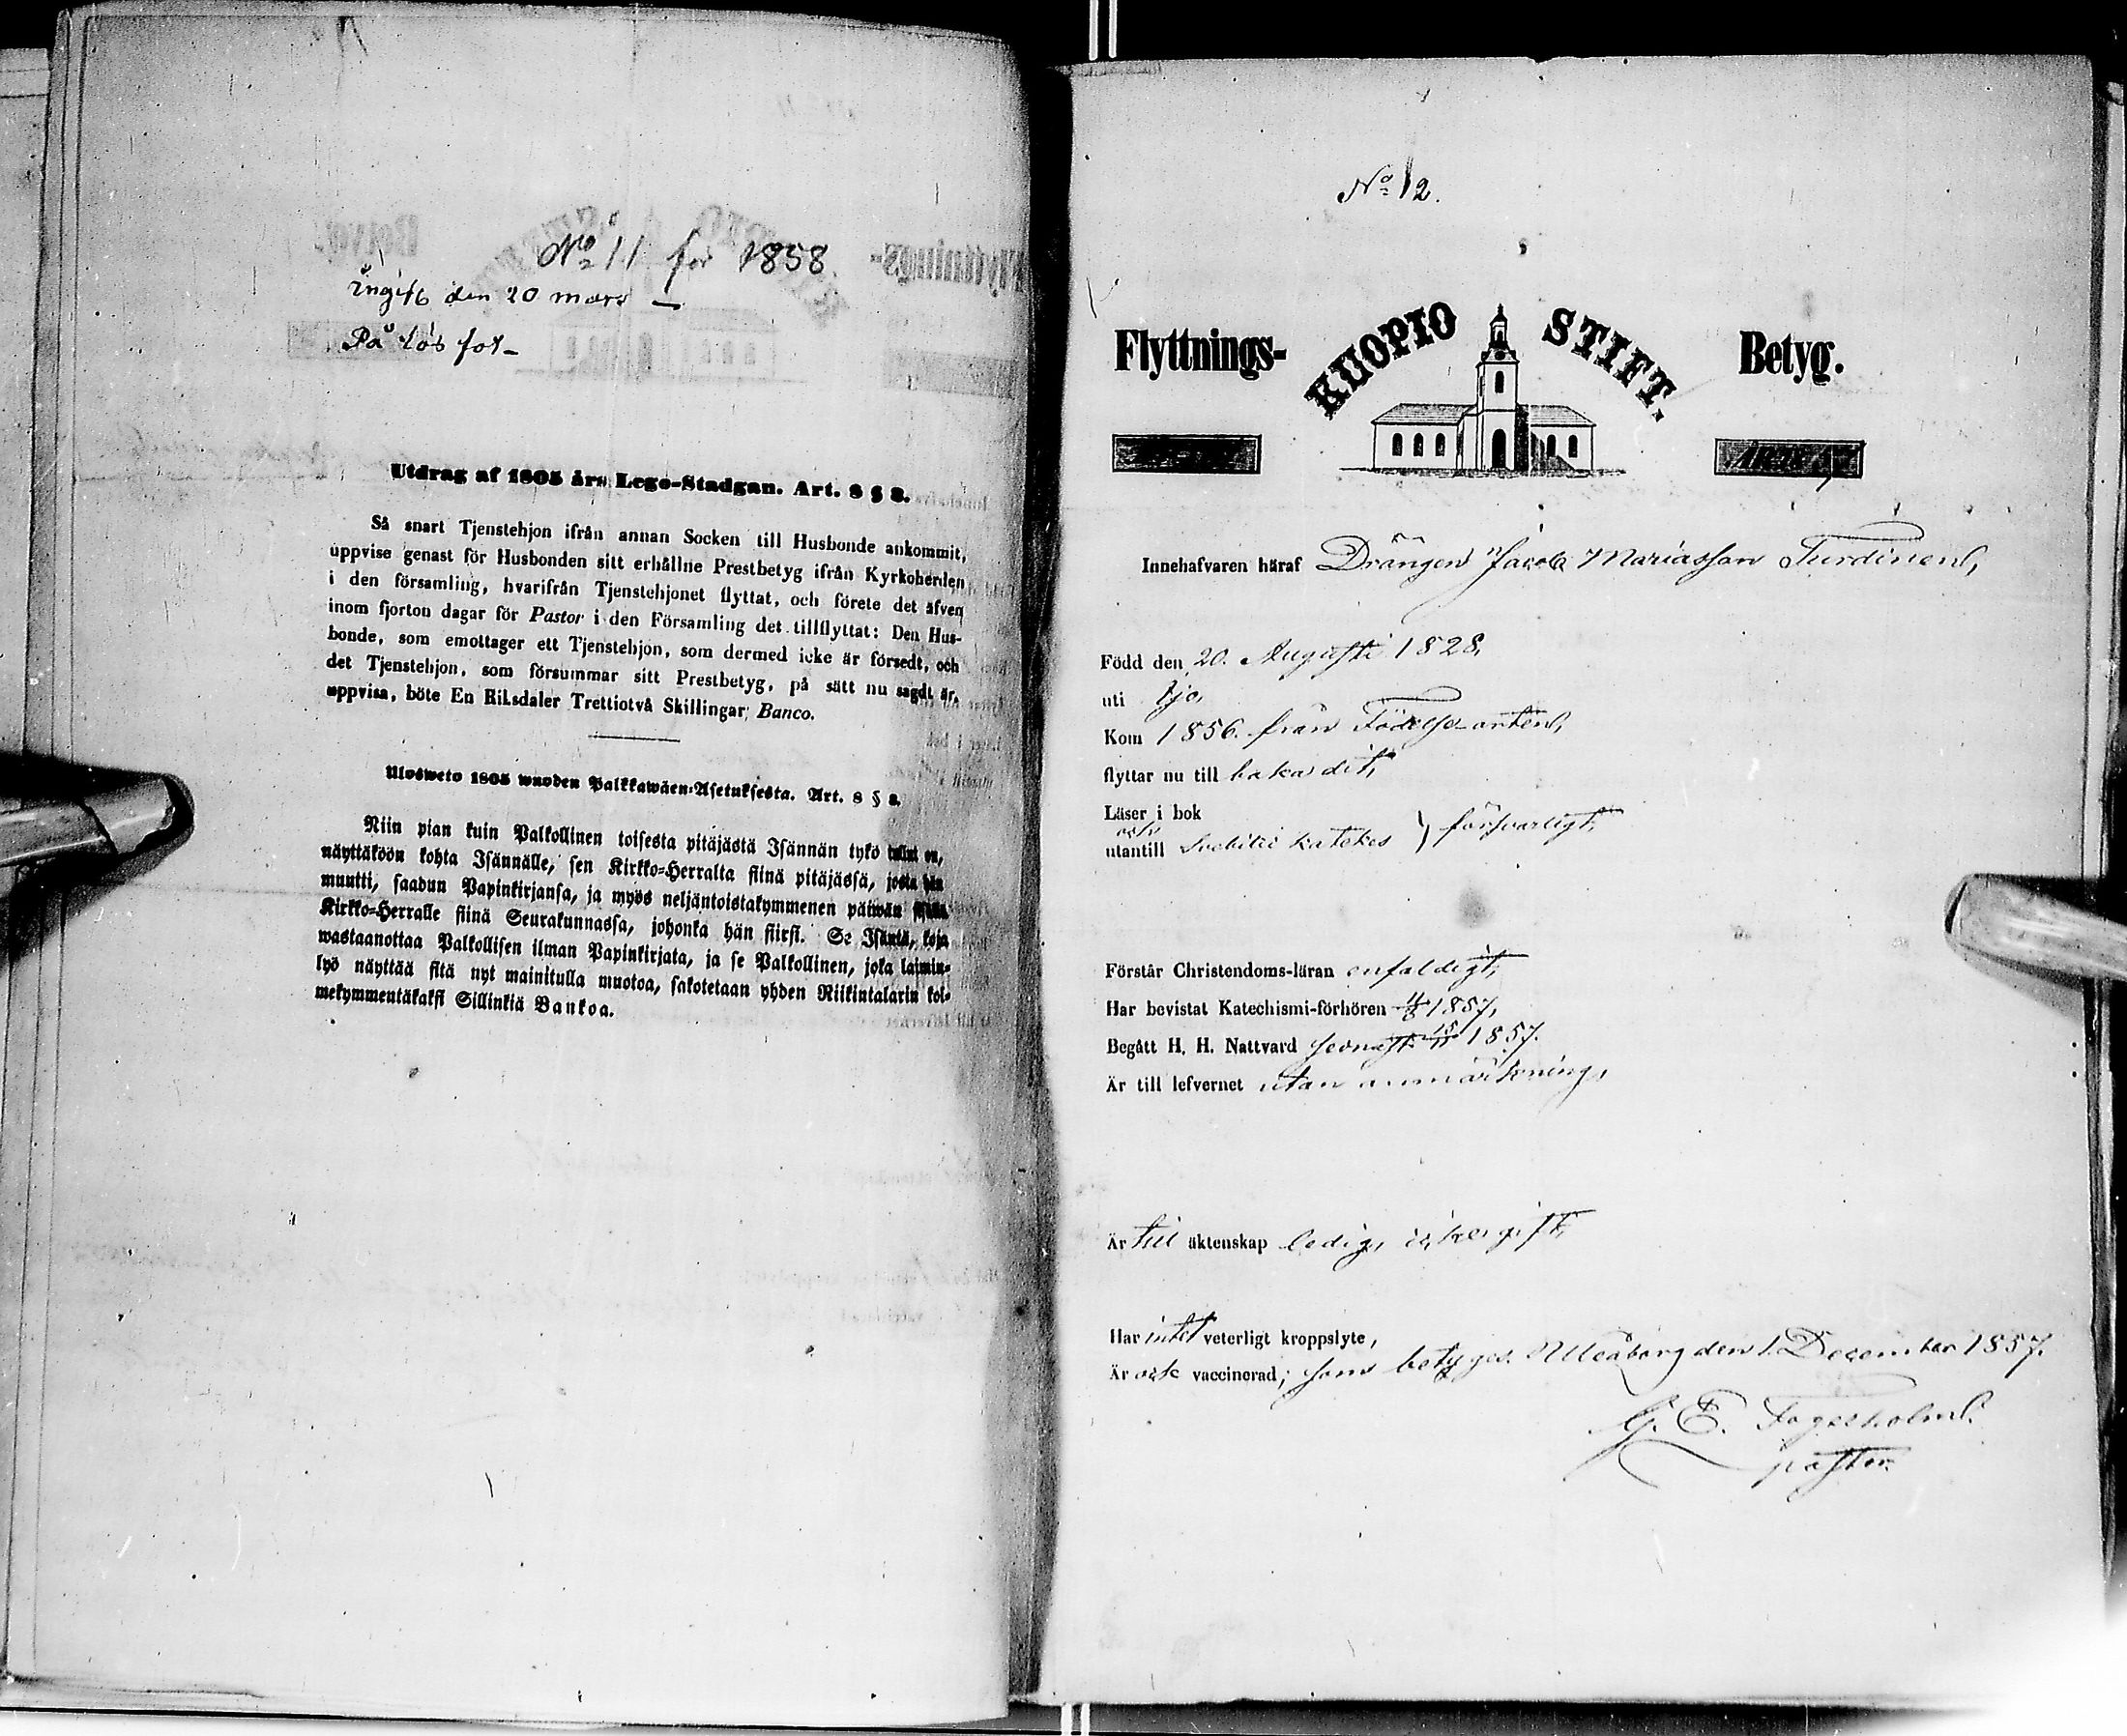 No 11 för 1858.
Ingift den 20 mars
På lös fot
Utdrag af 1805 års Lego-Stadgan. Art. 8 § 8.
Så snart Tjenstehjon ifrån annan Socken till Husbonde ankommit,
uppvise genast för Husbonden sitt erhållne Prestbetyg ifrån Kyrkoherden
i den församling, hvarifrån Tjenstehjonet flyttat, och förete det äfven
inom fjorton dagar för Pastor i den Församling det tillflyttat: Den Hus-
bonde, som emottager ett Tjenstehjon, som dermed icke är försedt, och
det Tjenstehjon, som försummar sitt Prestbetyg, på sätt nu sagdt är,
uppvisa, böte En Riksdaler Trettiotvå Skillingar Banco.
Ulosweto 1805 wuoden Palkkawäen-Asetuksesta. Art. 8 § 8.
Niin pian kuin Palkollinen toisesta pitäjästä Isännän tykö tullut on,
näyttäköön kohta Isännälle, sen Kirkko-Herralta siinä pitäjässä, josta hän
muutti, saadun Papinkirjansa, ja myös neljäntoistakymmenen päiwän sisällä
Kirkko-Herralle siinä Seurakunnassa, johonka hän siirsi. Se Isäntä, koja
wastaanottaa Palkollisen ilman Papinkirjata, ja se Palkollinen, joka laimin-
lyö näyttää sitä nyt mainitulla muotoa, sakotetaan yhden Riikintalarin kol-
mekymmentäkaksi Sillinkiä Bankoa.
No 12.
Flyttnings- KUOPIO STIFT. Betyg.
Innehafvaren häraf Drängen Jacob Mariasson Turdinen,
Född den 20. Augusti 1828.
uti Ijo,
Kom 1856. från Födelse-orten,
flyttar nu till baka dit,
Läser i bok
och
utantill Svebilii katekes } försvarligt,
Förstår Christendoms-läran enfaldigt,
Har bevistat Katechismi-förhören 1857,
Begått H. H. Nattvard senast 1857.
Är till lefvernet utan anmärkning,
Är till äktenskap ledig, icke gift,
Har intet veterligt kroppslyte,
Är ock vaccinerad; som betygas. Uleåborg den 1. December 1857.
G. E. Fogelholm.
pastor.